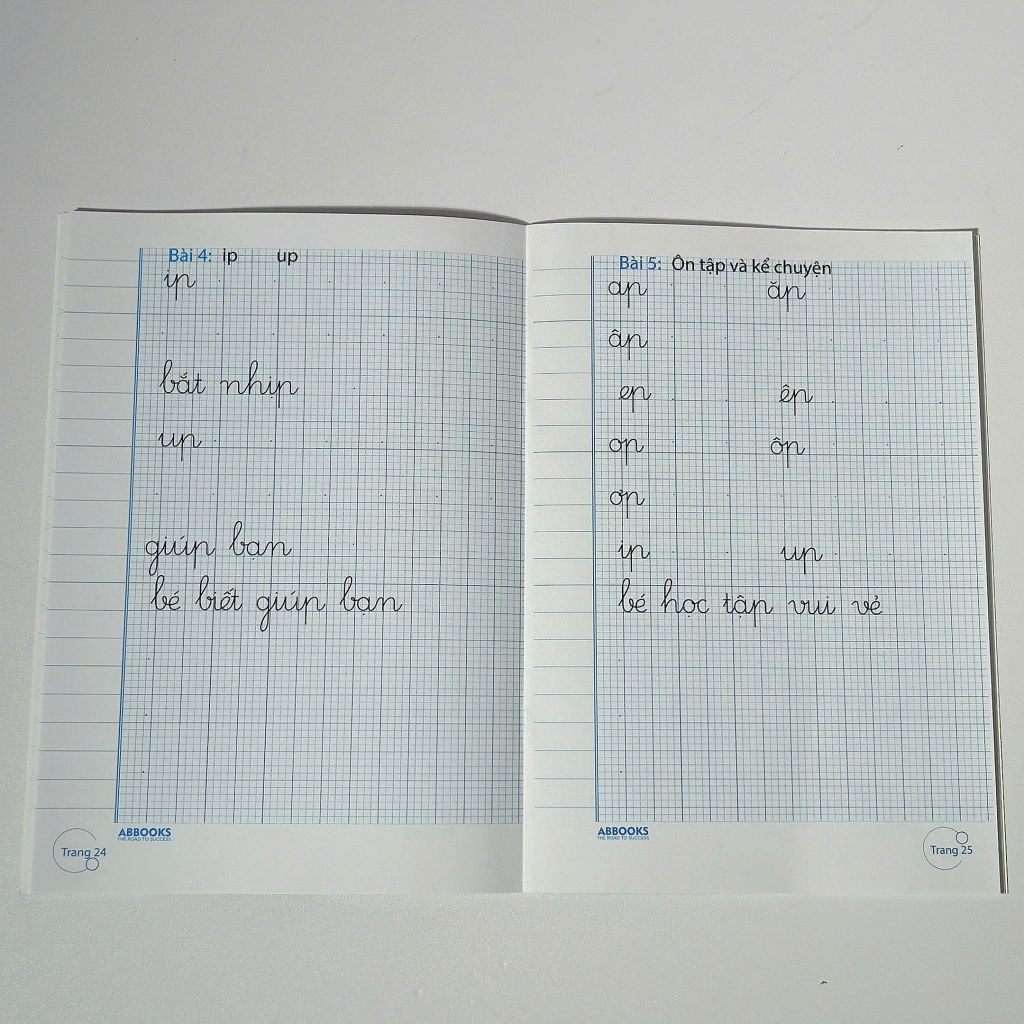 Bài 4: ip up
ip
bắt nhịp
up
giúp bạn
bé biết giúp bạn
ABBOOKS
THE ROAD TO SUCCESS
Trang 24
Bài 5: Ôn tập và kể chuyện
ap ăp
âp
ep êp
op ôp
ơp
ip up
bé học tập vui vẻ
ABBOOKS
THE ROAD TO SUCCESS
Trang 25